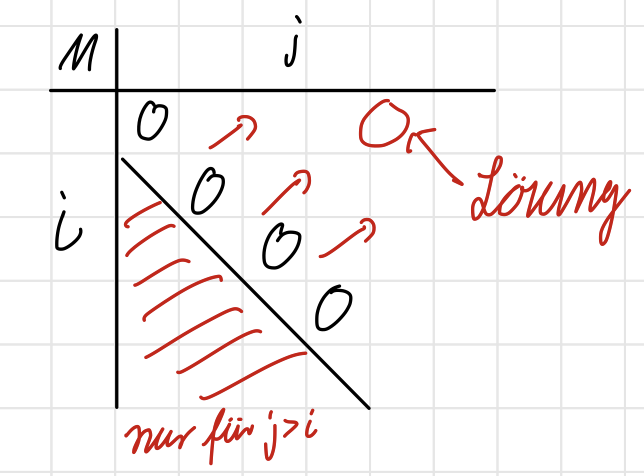 M j
0
0
i
0
0
Lösung
nur für j > i